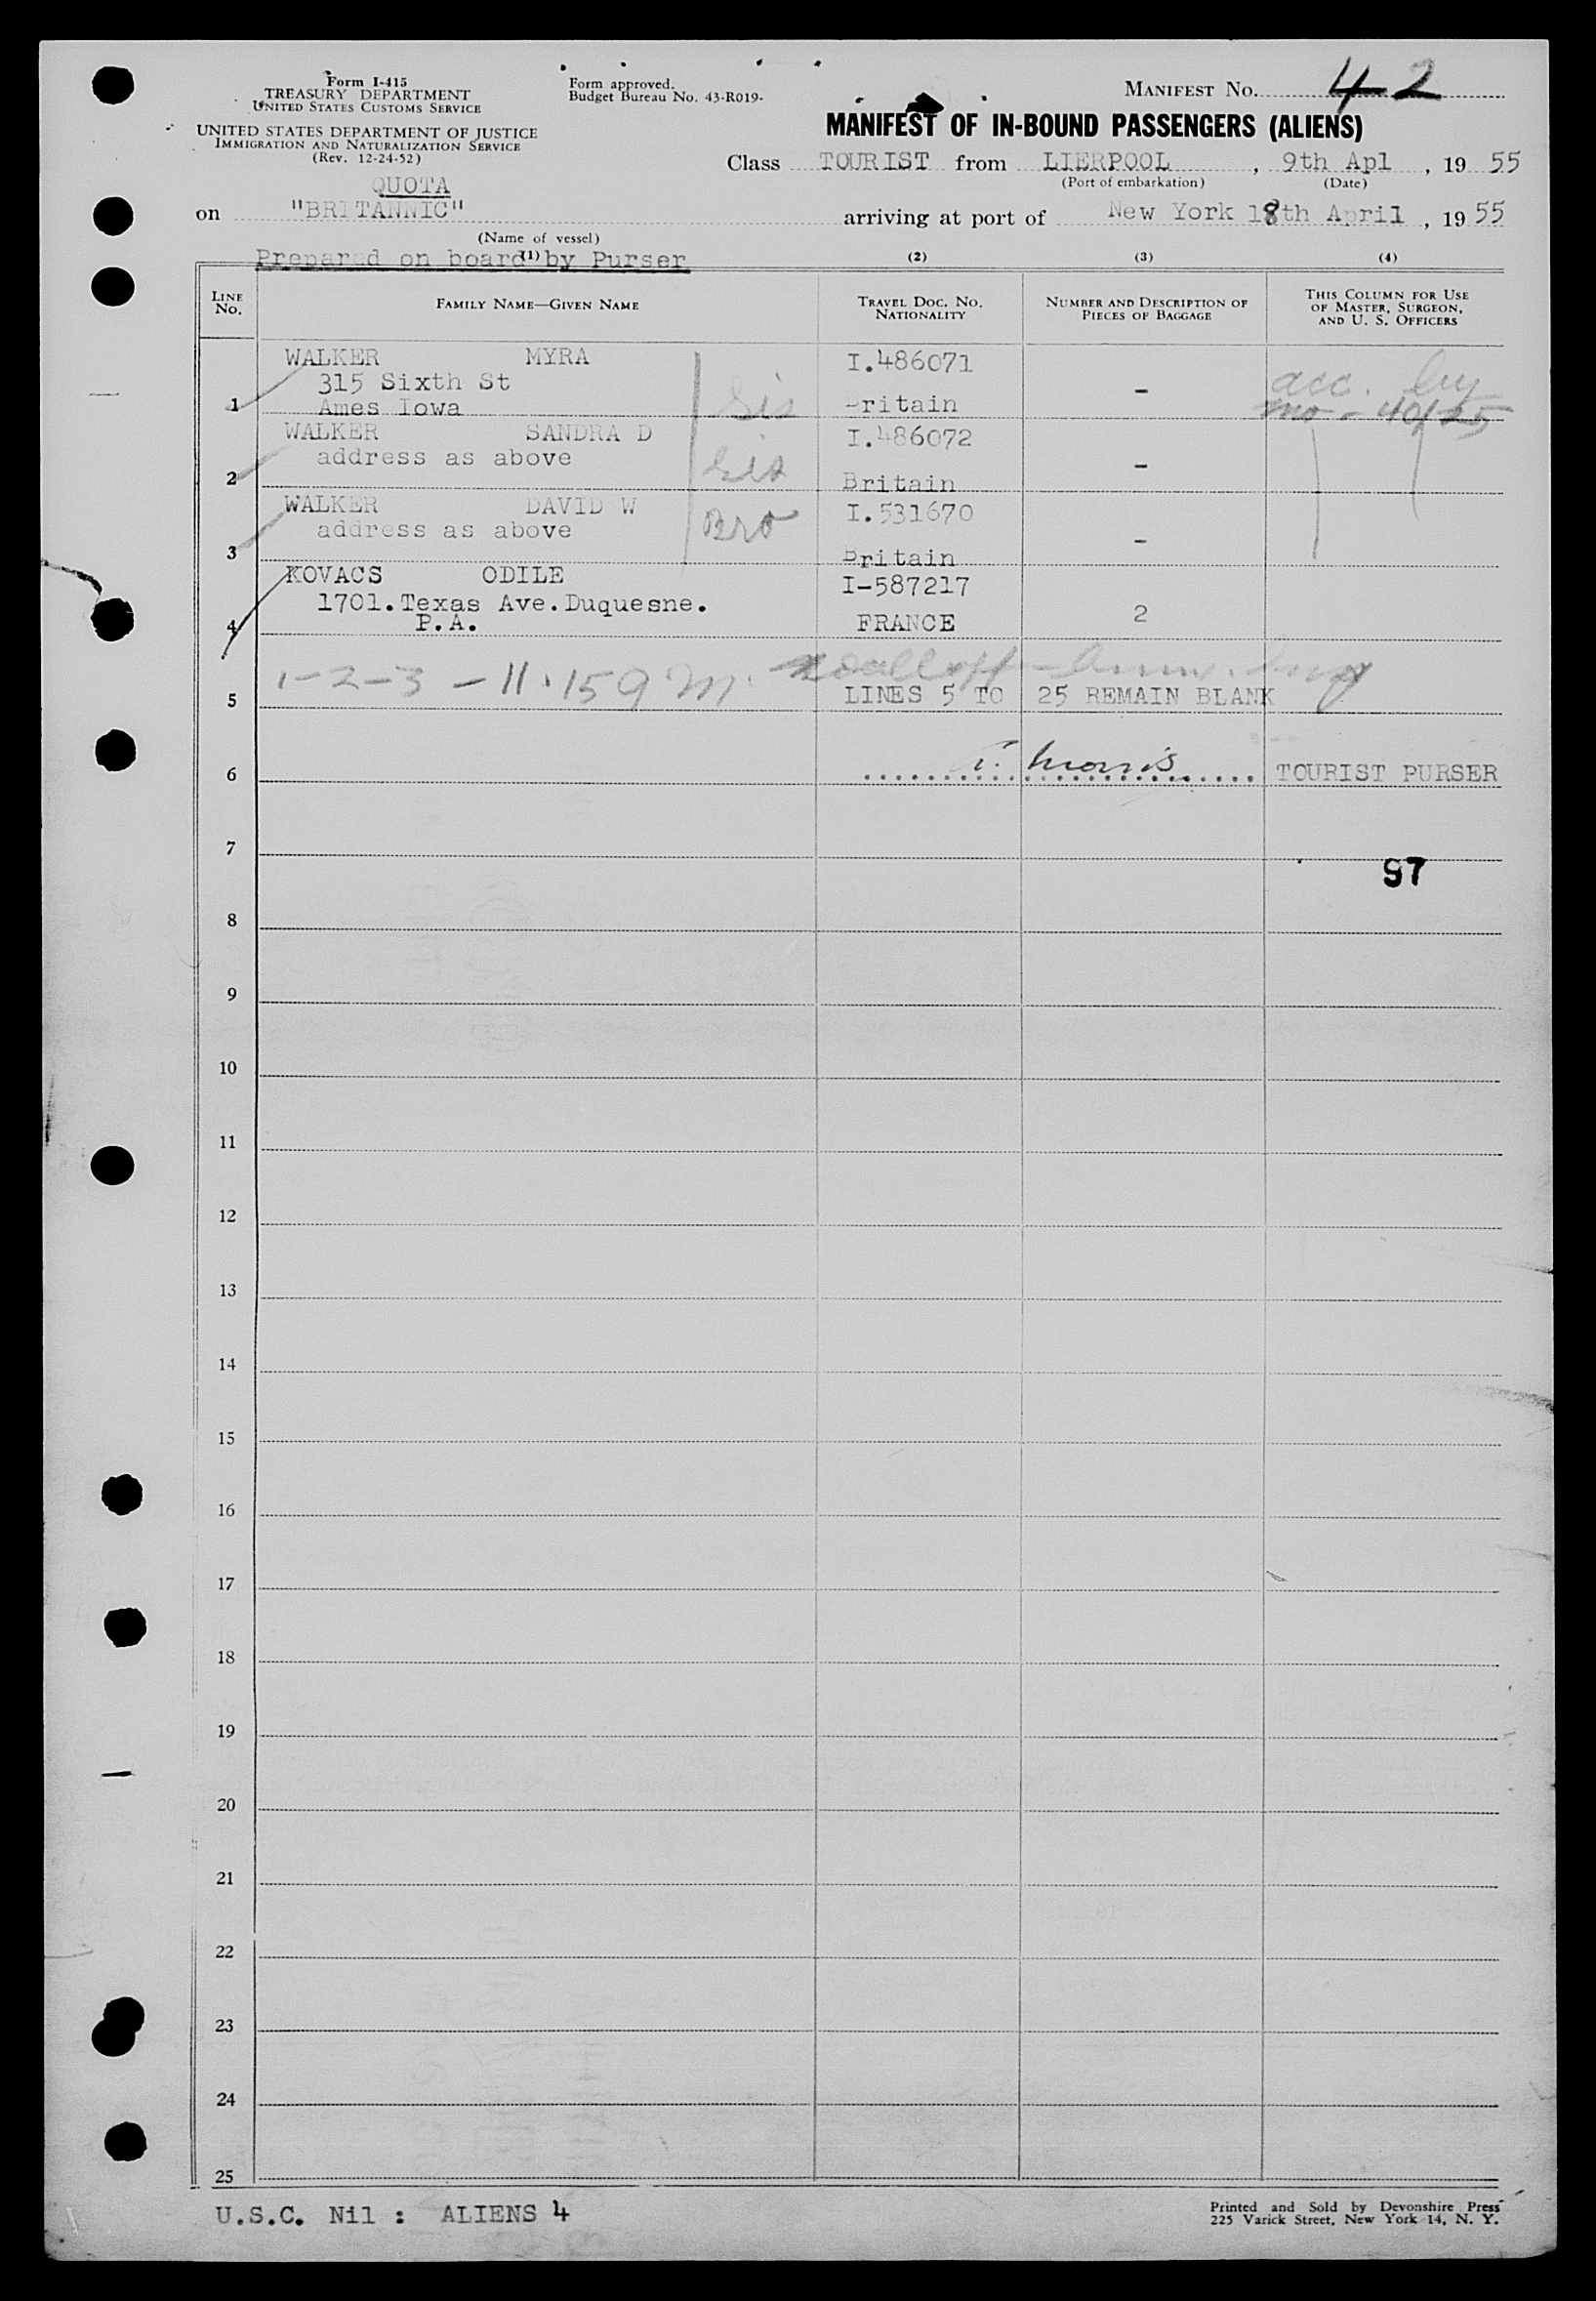 Form I-415
TREASURY DEPARTMENT
UNITED STATES CUSTOMS SERVICE
Form approved.
Budget Bureau No. 43-R019-
MANIFEST No. 42
UNITED STATES DEPARTMENT OF JUSTICE
IMMIGRATION AND NATURALIZATION SERVICE
(Rev. 12-24-52)
MANIFEST OF IN-BOUND PASSENGERS (ALIENS)
Class TOURIST from LIERPOOL, 9th Apl, 19 55
(Port of embarkation) (Date)
QUOTA
on "BRITANNIC" arriving at port of New York 18th April, 19 55
(Name of vessel)
Prepared on board by Purser
(1) (2) (3) (4)
LINE No.
FAMILY NAME—GIVEN NAME
TRAVEL DOC. NO. NATIONALITY
NUMBER AND DESCRIPTION OF PIECES OF BAGGAGE
THIS COLUMN FOR USE OF MASTER, SURGEON, AND U. S. OFFICERS
WALKER MYRA I.486071
315 Sixth St acc. by
1 Ames Iowa Sis -ritain - mo - 40/25
WALKER SANDRA D I.486072
address as above Sis
2 Britain -
WALKER DAVID W Bro I.531670
address as above
3 Britain -
KOVACS ODILE I-587217
1701.Texas Ave.Duquesne.
4 P.A. FRANCE 2
1-2-3 - 11.159 M.
5 LINES 5 TO 25 REMAIN BLANK
6 T. Morris TOURIST PURSER
7
97
8
9
10
11
12
13
14
15
16
17
18
19
20
21
22
23
24
25
U.S.C. Nil : ALIENS 4
Printed and Sold by Devonshire Press
225 Varick Street, New York 14, N. Y.